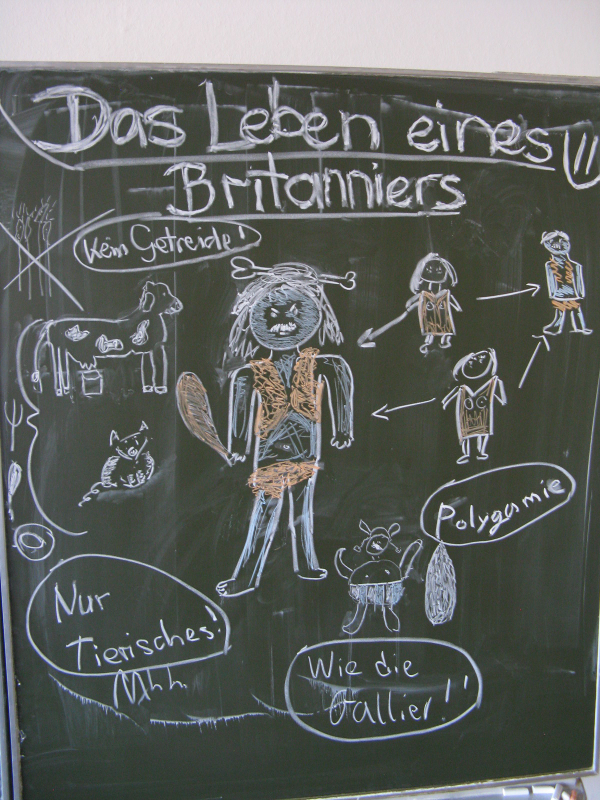 Das Leben eines
Britanniers
Kein Getreide!
Polygamie
Nur
Tierisches!
Mhh
Wie die
Gallier!!